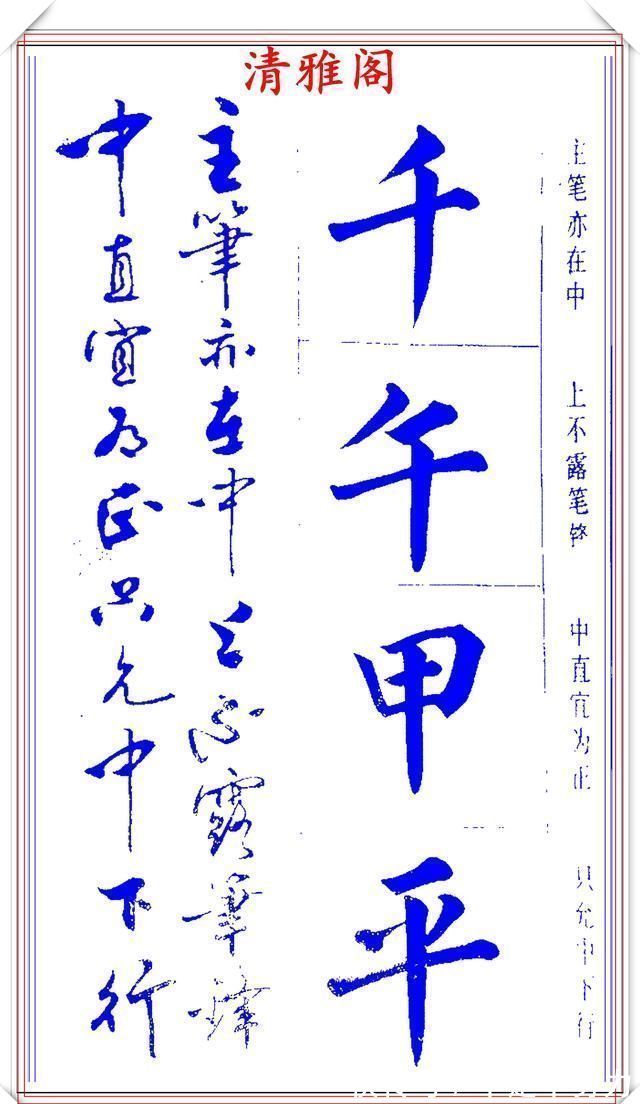 清雅阁
主笔亦在中 上不露笔锋 中直宜为正 只允中下行
千午甲平
主筆亦在中上不露筆鋒
中直宜为正只允中下行